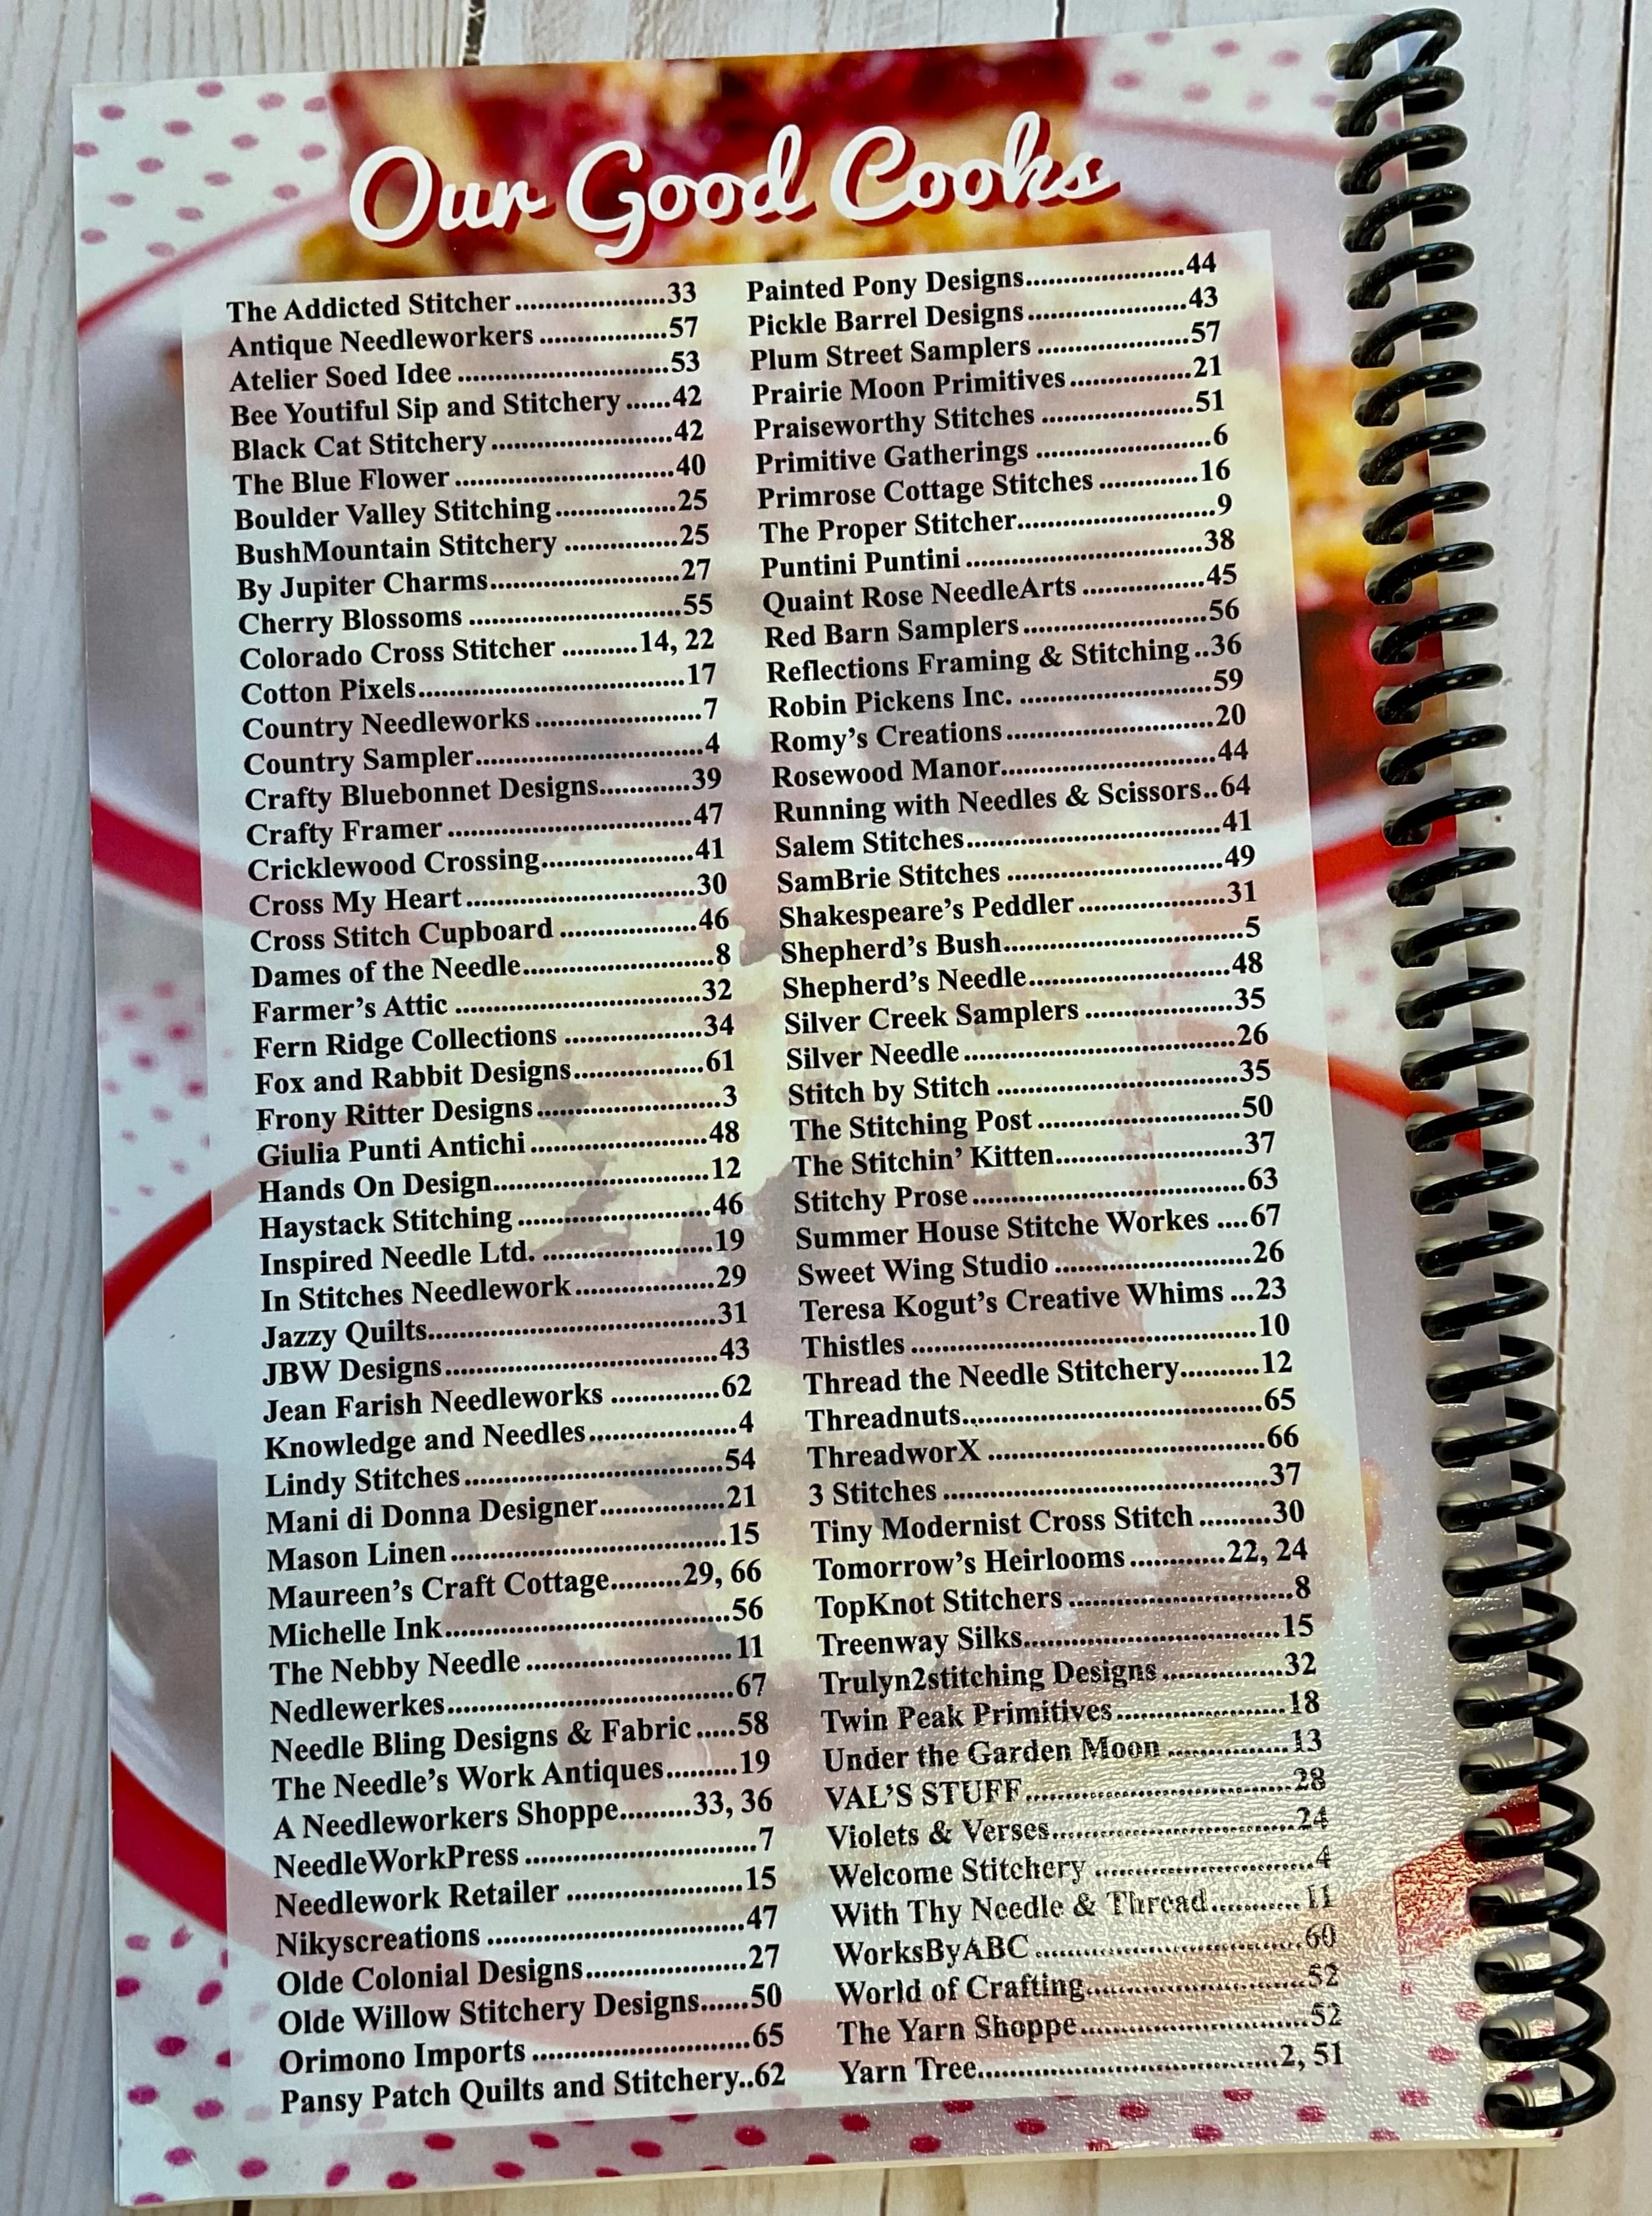 Our Good Cooks
The Addicted Stitcher....................33
Antique Needleworkers.................57
Atelier Soed Idee............................53
Bee Youtiful Sip and Stitchery......42
Black Cat Stitchery........................42
The Blue Flower.............................40
Boulder Valley Stitching................25
BushMountain Stitchery...............25
By Jupiter Charms.........................27
Cherry Blossoms............................55
Colorado Cross Stitcher..........14, 22
Cotton Pixels...................................17
Country Needleworks......................7
Country Sampler..............................4
Crafty Bluebonnet Designs............39
Crafty Framer................................47
Cricklewood Crossing....................41
Cross My Heart..............................30
Cross Stitch Cupboard..................46
Dames of the Needle.........................8
Farmer's Attic................................32
Fern Ridge Collections..................34
Fox and Rabbit Designs.................61
Frony Ritter Designs........................3
Giulia Punti Antichi.......................48
Hands On Design............................12
Haystack Stitching.........................46
Inspired Needle Ltd.......................19
In Stitches Needlework..................29
Jazzy Quilts.....................................31
JBW Designs....................................43
Jean Farish Needleworks..............62
Knowledge and Needles...................4
Lindy Stitches.................................54
Mani di Donna Designer................21
Mason Linen....................................15
Maureen's Craft Cottage.........29, 66
Michelle Ink.....................................56
The Nebby Needle...........................11
Nedlewerkes.....................................67
Needle Bling Designs & Fabric.....58
The Needle's Work Antiques.........19
A Needleworkers Shoppe.........33, 36
NeedleWorkPress..............................7
Needlework Retailer.......................15
Nikyscreations.................................47
Olde Colonial Designs.....................27
Olde Willow Stitchery Designs......50
Orimono Imports............................65
Pansy Patch Quilts and Stitchery..62
Painted Pony Designs.....................44
Pickle Barrel Designs.....................43
Plum Street Samplers....................57
Prairie Moon Primitives................21
Praiseworthy Stitches....................51
Primitive Gatherings.......................6
Primrose Cottage Stitches.............16
The Proper Stitcher..........................9
Puntini Puntini...............................38
Quaint Rose NeedleArts................45
Red Barn Samplers........................56
Reflections Framing & Stitching..36
Robin Pickens Inc..........................59
Romy's Creations...........................20
Rosewood Manor............................44
Running with Needles & Scissors..64
Salem Stitches.................................41
SamBrie Stitches............................49
Shakespeare's Peddler...................31
Shepherd's Bush...............................5
Shepherd's Needle..........................48
Silver Creek Samplers...................35
Silver Needle...................................26
Stitch by Stitch...............................35
The Stitching Post..........................50
The Stitchin' Kitten........................37
Stitchy Prose...................................63
Summer House Stitche Workes....67
Sweet Wing Studio.........................26
Teresa Kogut's Creative Whims...23
Thistles............................................10
Thread the Needle Stitchery..........12
Threadnuts......................................65
ThreadworX...................................66
3 Stitches.........................................37
Tiny Modernist Cross Stitch.........30
Tomorrow's Heirlooms............22, 24
TopKnot Stitchers............................8
Treenway Silks................................15
Trulyn2stitching Designs...............32
Twin Peak Primitives.....................18
Under the Garden Moon................13
VAL'S STUFF.................................28
Violets & Verses..............................24
Welcome Stitchery...........................4
With Thy Needle & Thread............11
WorksByABC.................................60
World of Crafting...........................52
The Yarn Shoppe............................52
Yarn Tree....................................2, 51